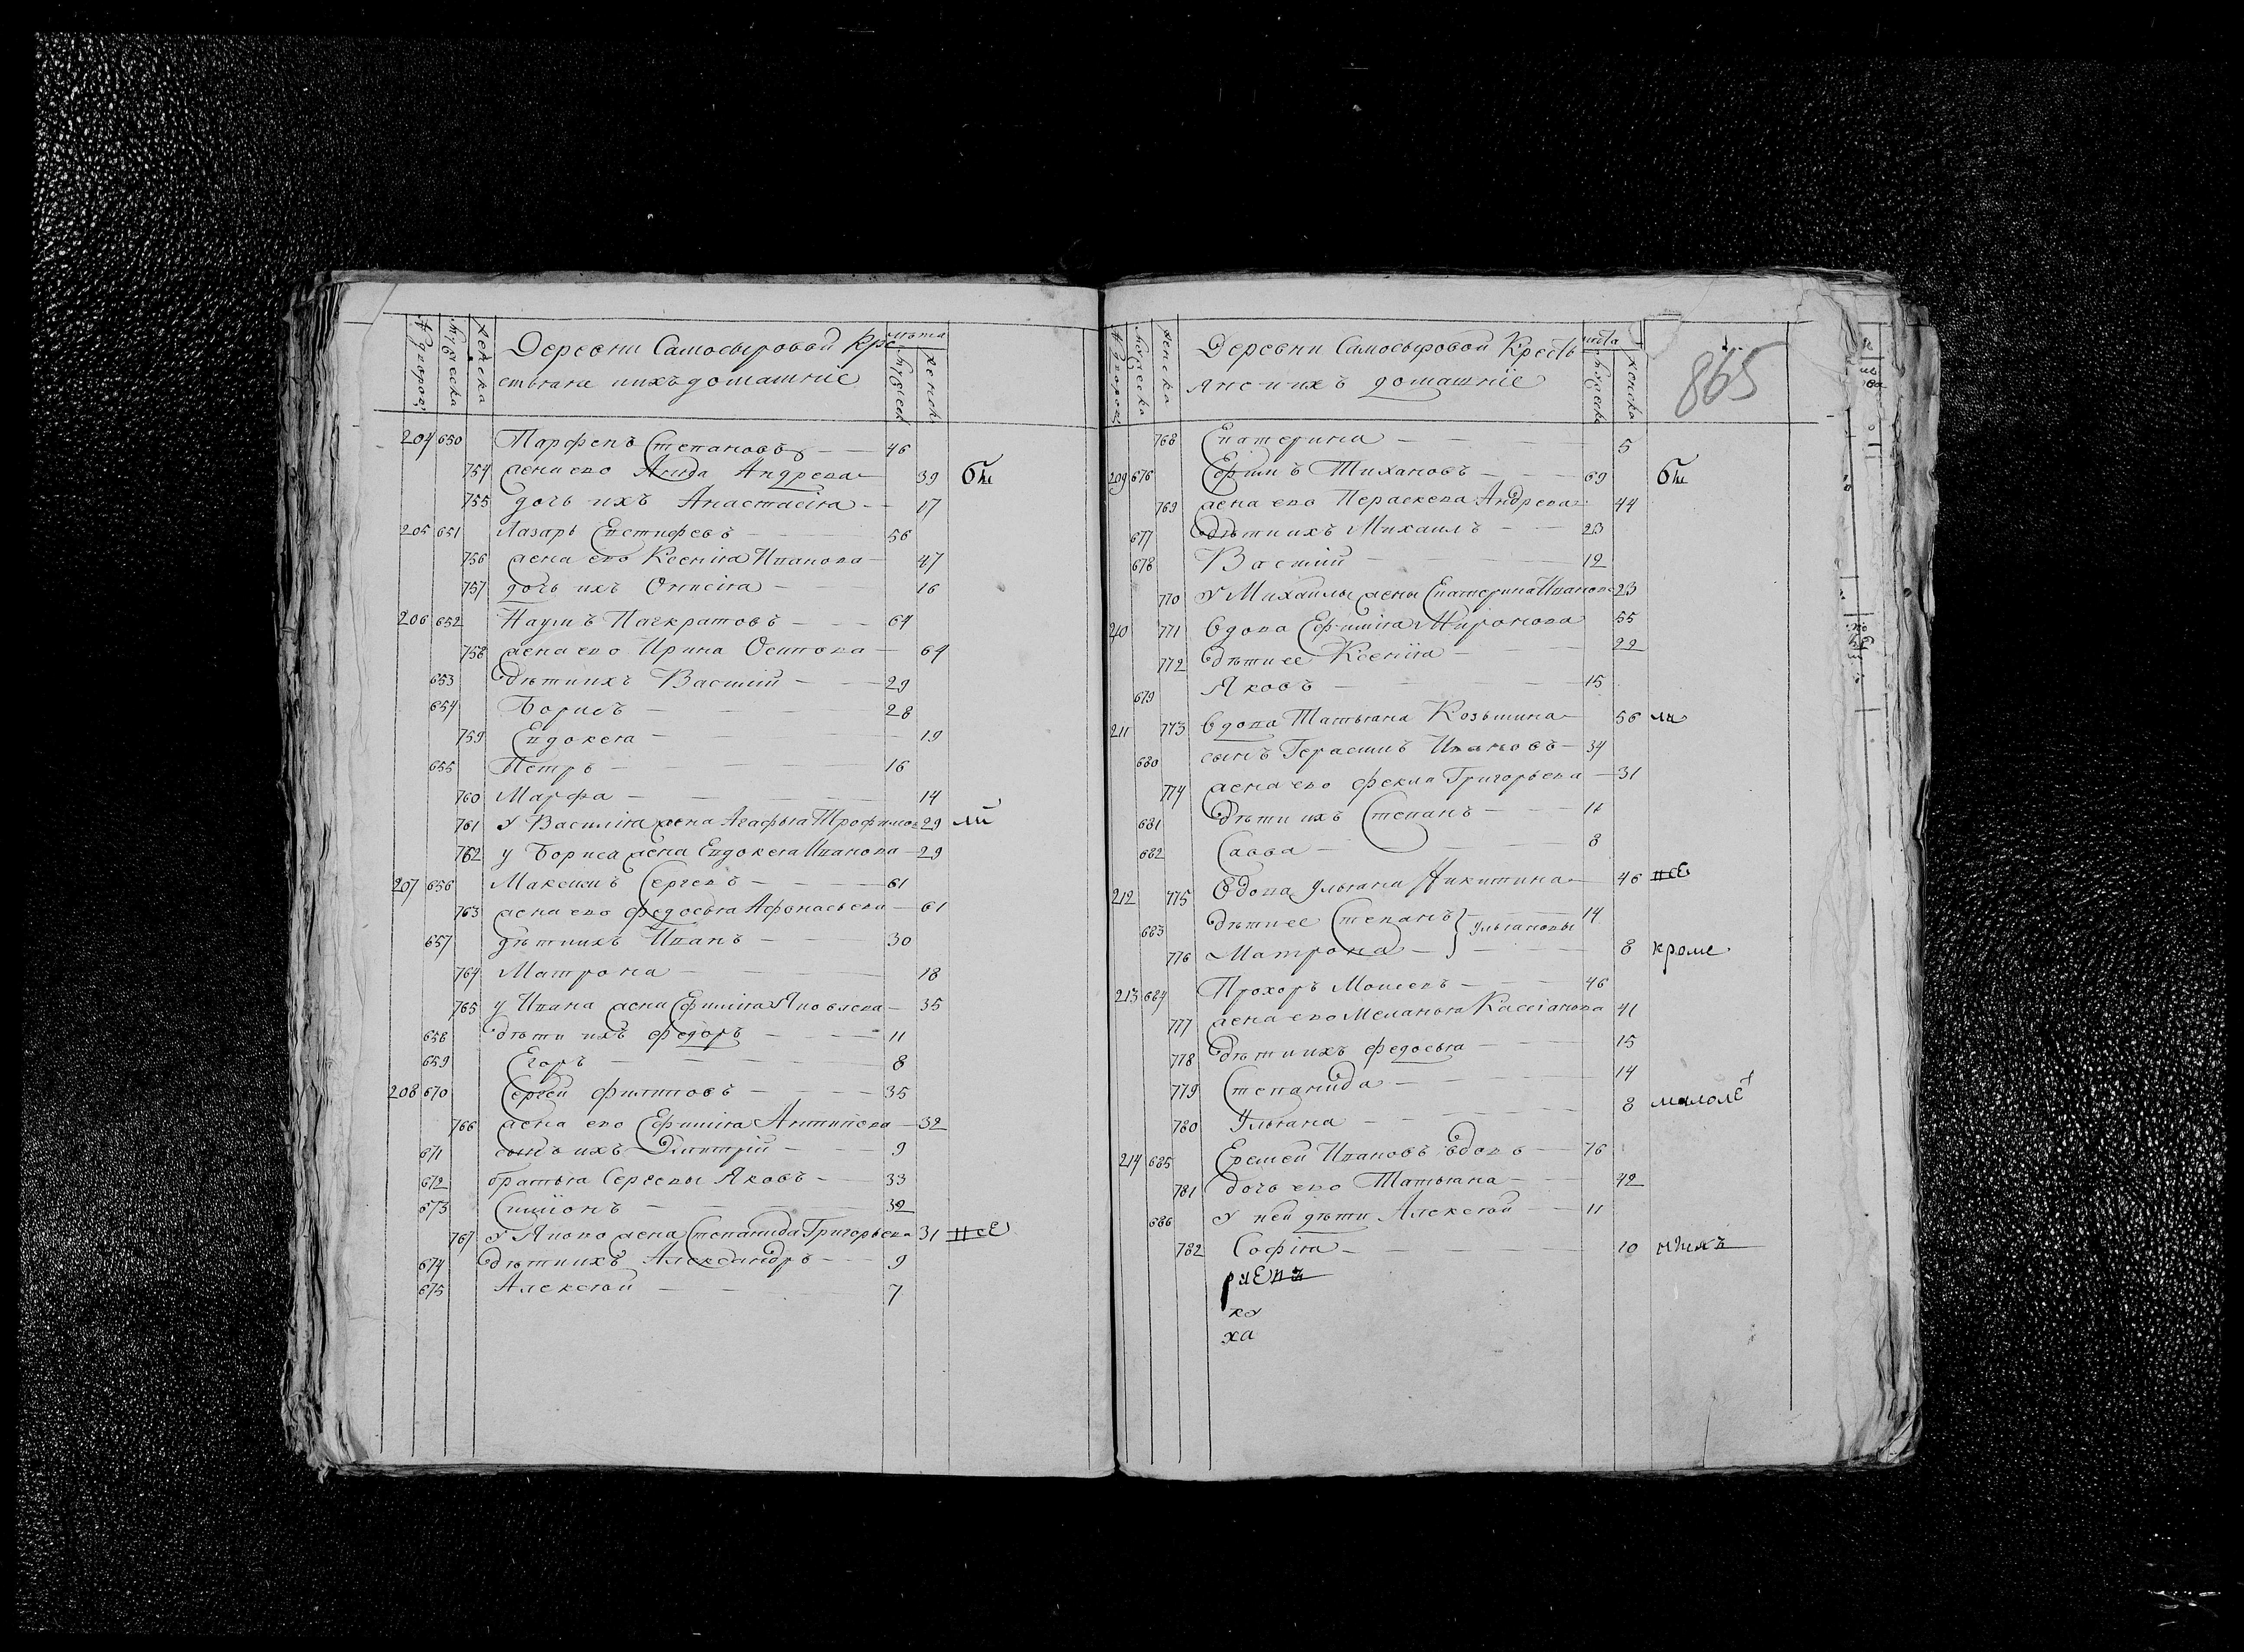 № дворовъ мужеска женска Деревни Самосыровой Кре лѣта
стьяне ихъ домашніе мужеск женск
204 650 Парфенъ Степановъ 46
754 жена ево Аниса Андрева 39 бы
755 дочь ихъ Анастасія 17
205 651 Лазарь Евстифеевъ 56
756 жена ево Ксенія Иванова 47
757 дочь ихъ 16
206 652 Наумъ Панкратовъ 64
758 жена ево Ирина Осипова 64
653 дѣти ихъ Василий 29
654 Борисъ 28
759 Евдокея 19
655 Петръ 16
760 Марфа 14
761 У Василія жена Агафья Трофимов 29 ли
762 у Бориса жена Евдокея Иванова 29
207 656 Максимъ Сергевъ 61
763 жена ево Федосья Афонасьева 61
657 дѣти ихъ Иванъ 30
764 Матрона 18
765 у Ивана жена Ефимія Яковлева 35
658 дѣти ихъ Федоръ 11
659 Егоръ 8
208 670 Сергей Филиповъ 35
766 жена ево Ефимія Антипева 32
671 сынъ ихъ Дмитрій 9
672 братья Сергевы Яковъ 33
673 Симіонъ 32
767 У Якова жена Степанида Григорьева 31 исе
674 дѣти ихъ Александръ 9
675 Алексѣй 7
№ дворовъ мужеска женска Деревни Самосыровой Кресть лѣта
яне и ихъ домашніе мужеска женска 865
768 Екатерина 5
209 676 Ефимъ Тихановъ 69 бы
769 жена ево Пераскева Андрева 44
677 дѣти ихъ Михаилъ 23
678 Василий 12
770 У Михаилы жены Екатерина Иванова 23
210 771 вдова Ефимія Миронова 55
772 дѣти ее Ксенія 22
679 Яковъ 15
211 773 вдова Татьяна Козьмина 56 ли
680 сынъ Герасимъ Ивановъ 34
774 жена ево Фекла Григорьева 31
681 дѣти ихъ Степанъ 11
682 Савва 8
212 775 вдова Ульяна Никитина 46 исе
683 дѣти ее Степанъ } Ульяновы 14
776 Матрона 8 кроме
213 684 Прохоръ Моисевъ 46
777 жена ево Меланья Кассіанова 41
778 дѣти ихъ Федосья 15
779 Степанида 14
780 Ульяна 8 малолѣ
214 685 Еремей Ивановъ вдовъ 76
781 дочь ево Татьяна 42
686 У ней дѣти Алексѣй 11
782 Софія 10 тнихъ
ку
ха